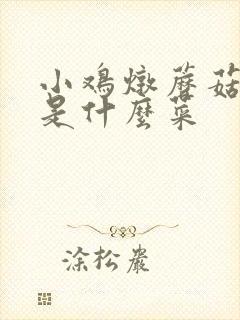 小鸡燉蘑菇
是什麼菜
涂松巖